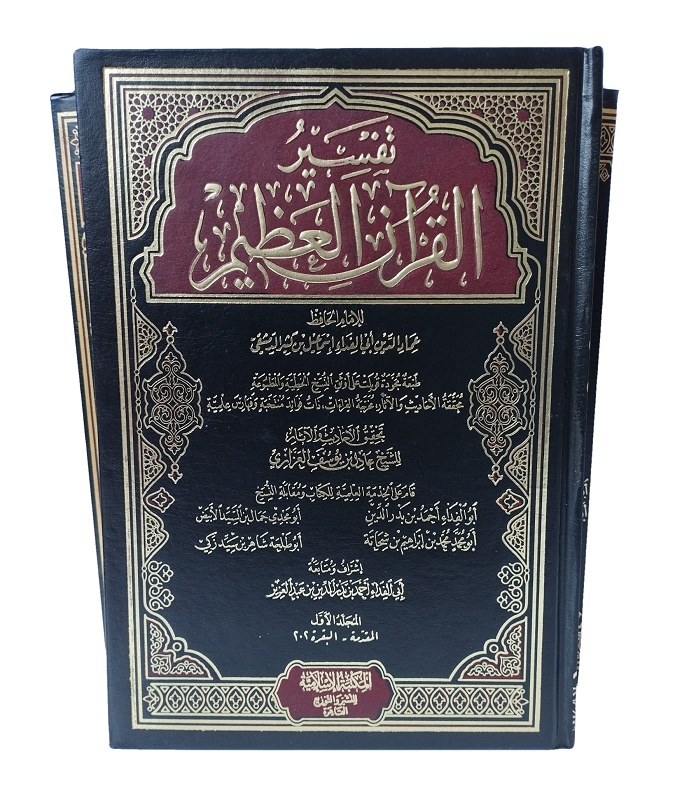 تَفْسِيْرُ
القُرْآنِ العَظِيْمِ
للإمام الحافظ
عماد الدين أبي الفداء إسماعيل بن كثير الدمشقي
طبعة مجودة قوبلت على أوثق النسخ الخطية والمطبوعة
محققة الأحاديث والآثار، مخرجة القراءات، ذات فوائد منتخبة وفهارس علمية
تحقيق الأحاديث والآثار
للشيخ عادل بن يوسف العزازي
قام على الخدمة العلمية للكتاب ومقابلة النسخ
أبو الفداء أحمد بن بدر الدين أبو مجدي جمال بن السيد الأبيض
أبو محمد محمد بن إبراهيم بن شحاتة أبو طلحة شاهر بن سيد زكي
إشراف ومتابعة
أبي الفداء أحمد بن بدر الدين بن عبد العزيز
المجلد الأول
المقدمة - البقرة ٢٠٢
المكتبة الإسلامية
للنشر والتوزيع
القاهرة